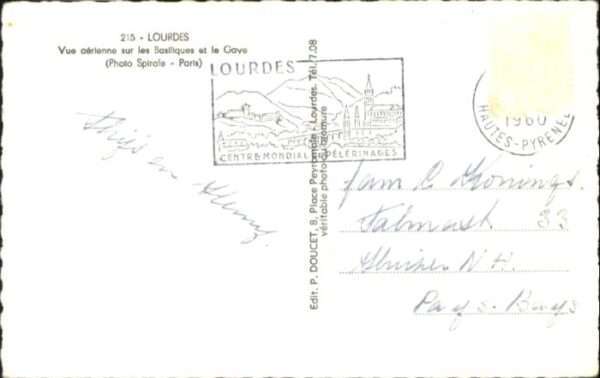 215 - LOURDES
Vue aérienne sur les Basiliques et le Gave
(Photo Spirale - Paris)
LOURDES
CENTRE MONDIAL PÈLERINAGES
1960
HAUTES-PYRENEES
Edit. P. DOUCET, 8, Place Peyramale - Lourdes. Tél. 7.08
véritable photo au bromure
en
Fam C Konings.
33
N H.
Pays-Bays